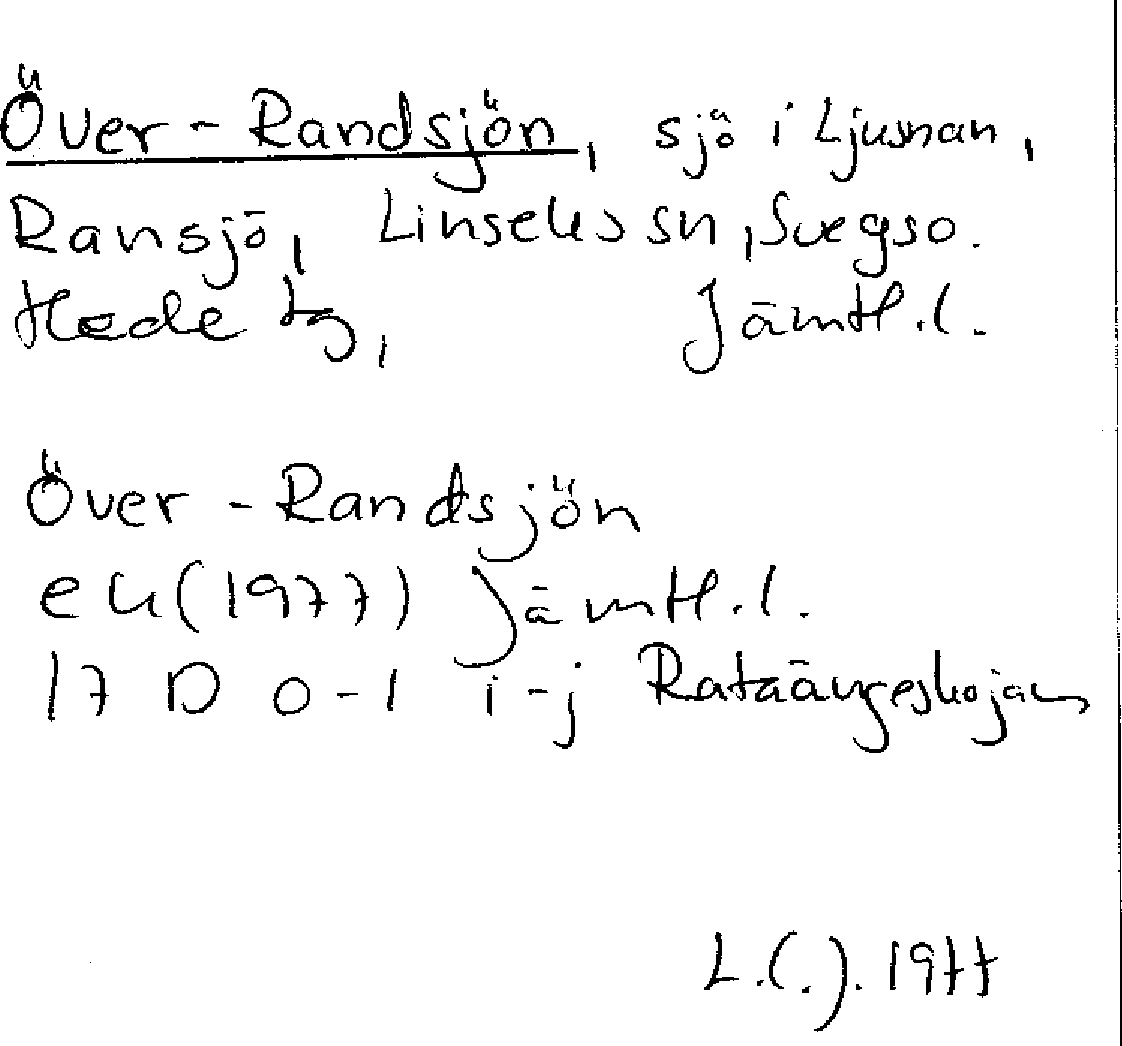 Över-Randsjön, sjö i Ljusnan,
Ransjö, Linsells sn, Svegs o.
Hede tg, Jämtl.l.
Över-Randsjön
ek (1977) Jämtl.l.
17 D 0-1 i-j
L.(.). 1977